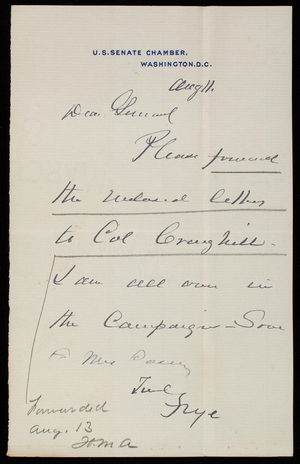 U.S. SENATE CHAMBER,
WASHINGTON, D.C.
Aug 11.
Dear General
Please forward
the enclosed letter
to Col Craighill.
I am all over in
the Campaign -
Mrs Casey
Frye
Forwarded
Aug. 13